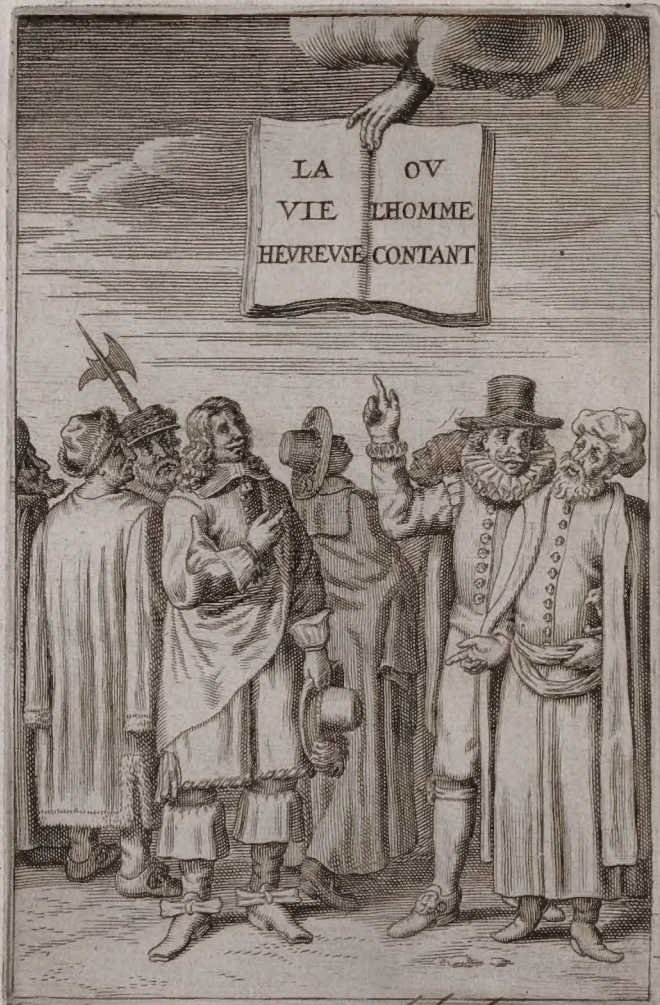 LA
VIE
HEVREVSE
OV
L'HOMME
CONTANT